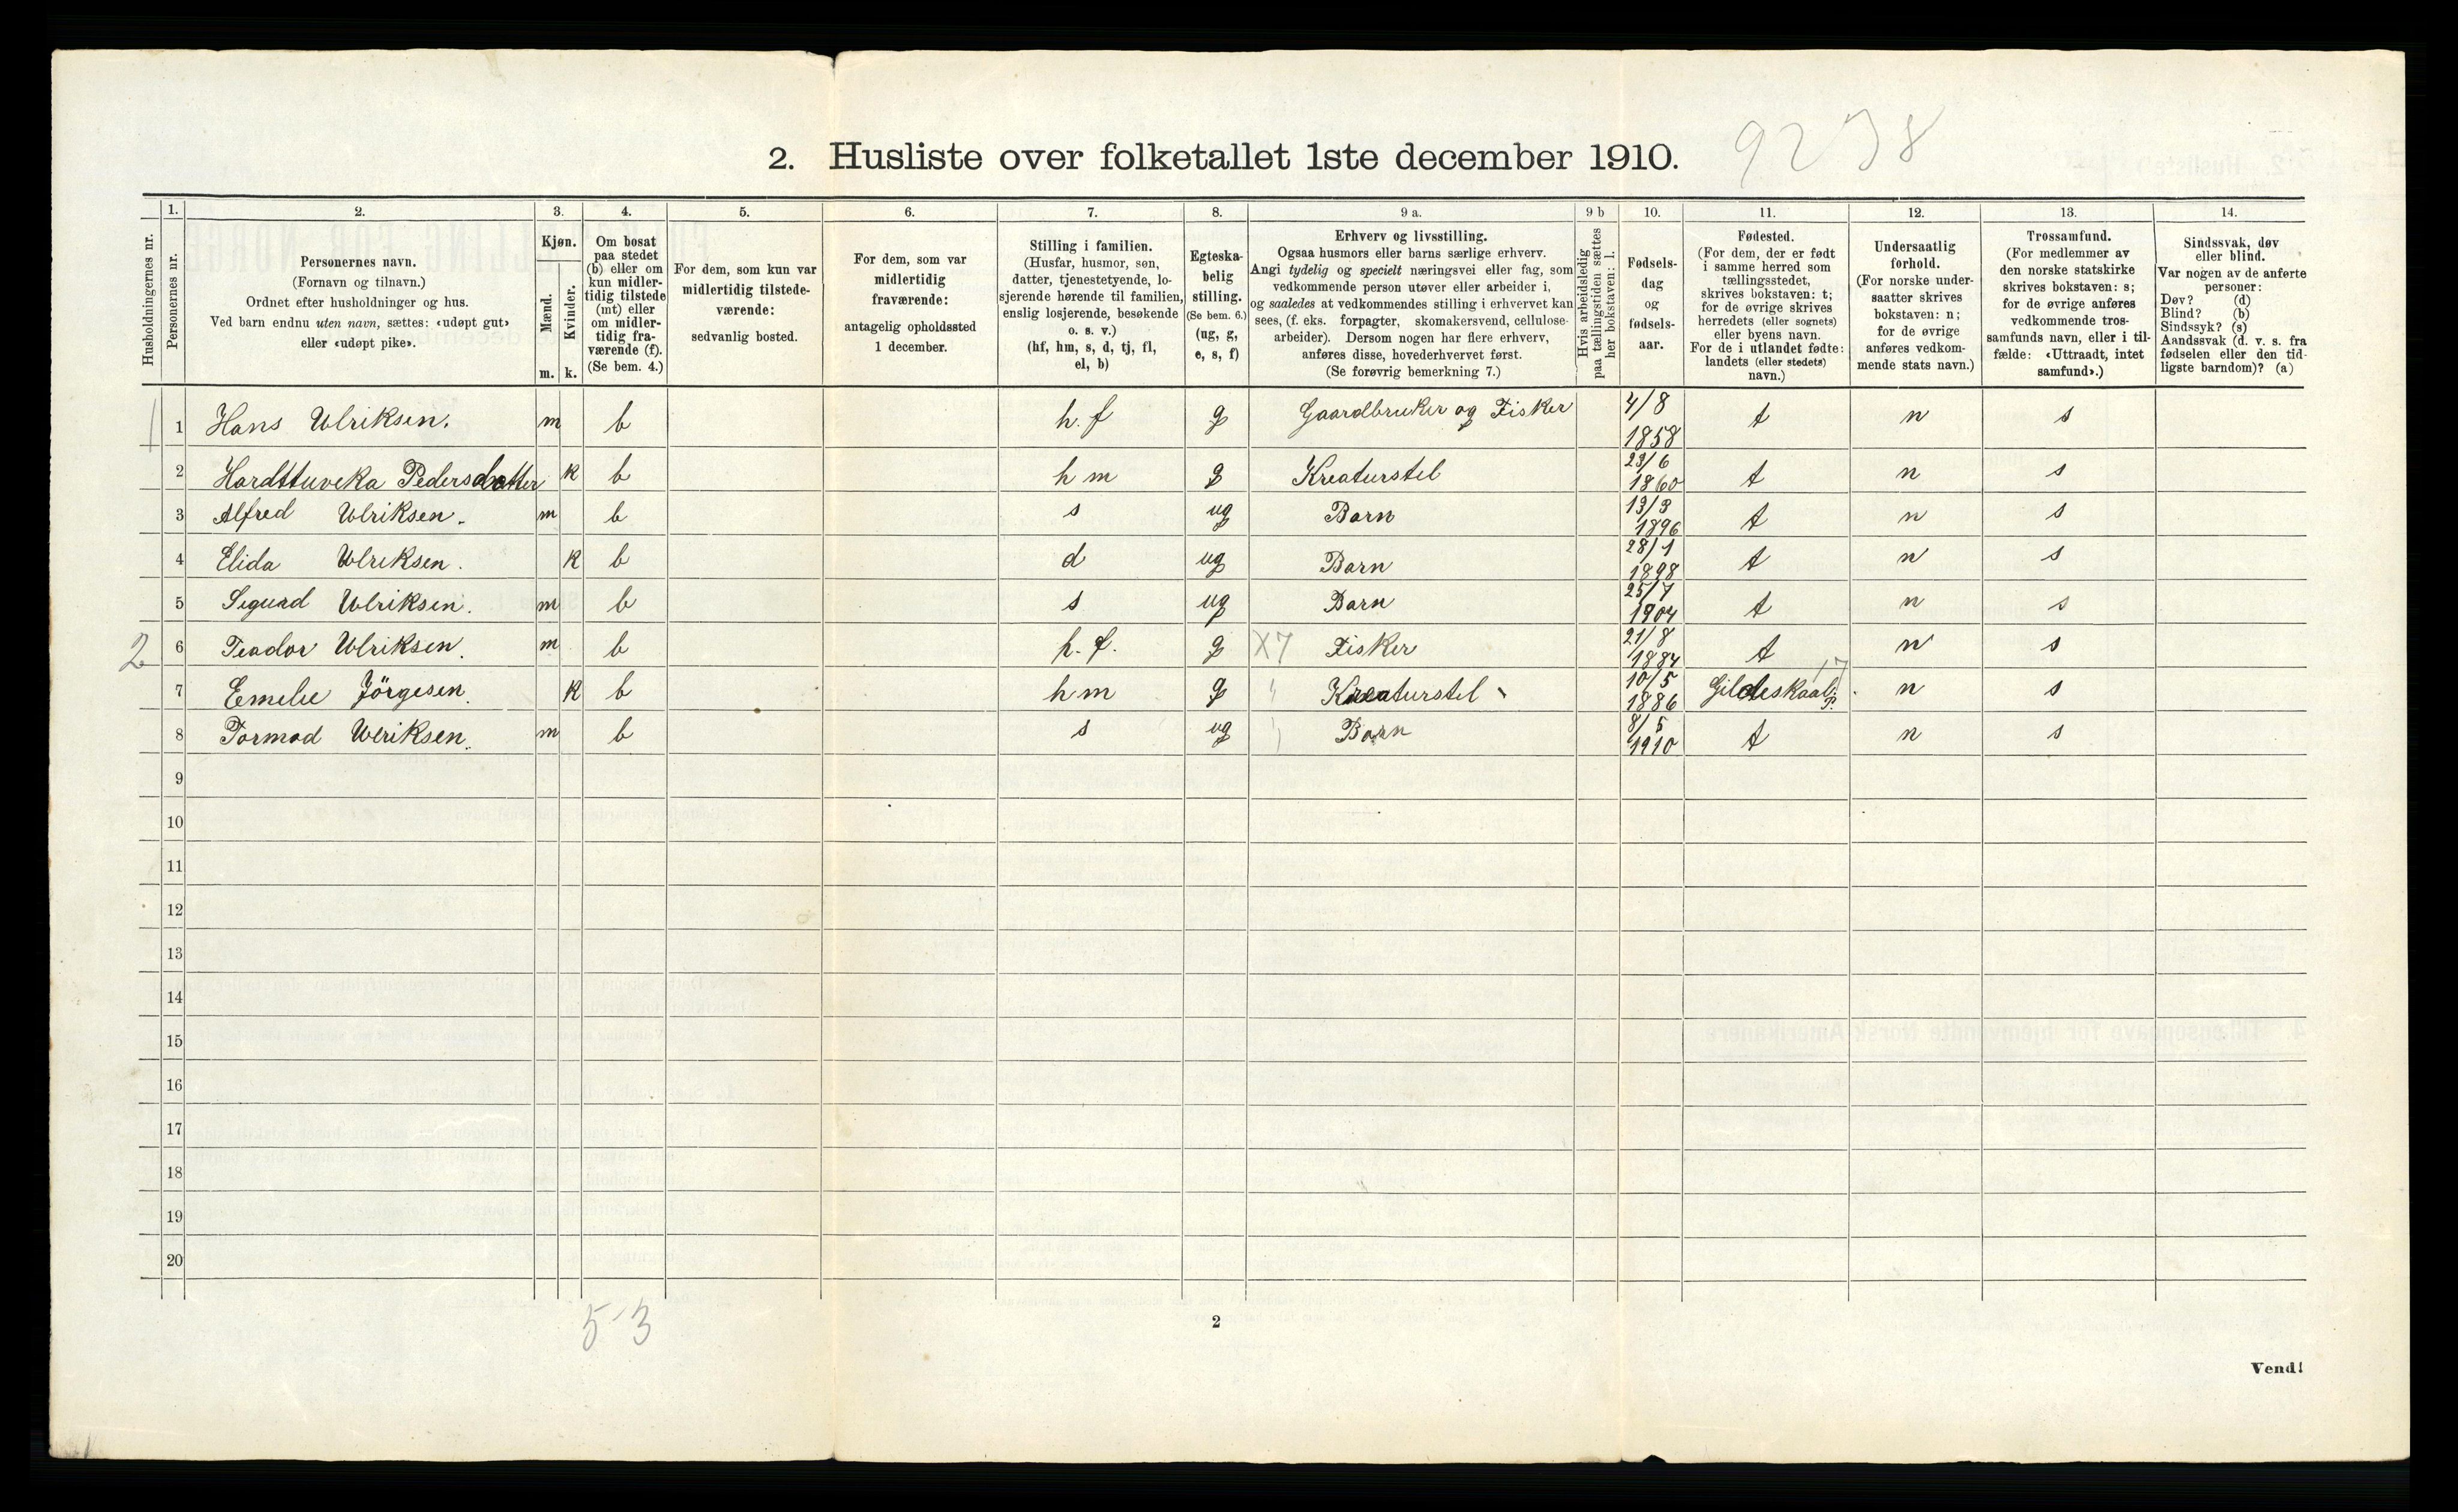 9238
2. Husliste over folketallet 1ste december 1910.
Husholdningernes nr.
1. Personernes nr.
2. Personernes navn. (Fornavn og tilnavn.) Ordnet efter husholdninger og hus. Ved barn endnu uten navn, sættes: «udøpt gut» eller «udøpt pike».
3. Kjøn. Mænd. Kvinder. m. k.
4. Om bosat paa stedet (b) eller om kun midler-tidig tilstede (mt) eller om midler-tidig fra-værende (f). (Se bem. 4.)
5. For dem, som kun var midlertidig tilstede-værende: sedvanlig bosted.
6. For dem, som var midlertidig fraværende: antagelig opholdssted 1 december.
7. Stilling i familien. (Husfar, husmor, søn, datter, tjenestetyende, lo-sjerende hørende til familien, enslig losjerende, besøkende o. s. v.) (hf, hm, s, d, tj, fl, el, b)
8. Egteska-belig stilling. (Se bem. 6.) (ug, g, e, s, f)
9 a. Erhverv og livsstilling. Ogsaa husmors eller barns særlige erhverv. Angi tydelig og specielt næringsvei eller fag, som vedkommende person utøver eller arbeider i, og saaledes at vedkommendes stilling i erhvervet kan sees, (f. eks. forpagter, skomakersvend, cellulose-arbeider). Dersom nogen har flere erhverv, anføres disse, hovederhvervet først. (Se forøvrig bemerkning 7.)
9 b Hvis arbeidsledig paa tællingstiden sættes her bokstaven: l.
10. Fødsels-dag og fødsels-aar.
11. Fødested. (For dem, der er født i samme herred som tællingsstedet, skrives bokstaven: t; for de øvrige skrives herredets (eller sognets) eller byens navn. For de i utlandet fødte: landets (eller stedets) navn.)
12. Undersaatlig forhold. (For norske under-saatter skrives bokstaven: n; for de øvrige anføres vedkom-mende stats navn.)
13. Trossamfund. (For medlemmer av den norske statskirke skrives bokstaven: s; for de øvrige anføres vedkommende tros-samfunds navn, eller i til-fælde: «Uttraadt, intet samfund».)
14. Sindssvak, døv eller blind. Var nogen av de anførte personer: Døv? (d) Blind? (b) Sindssyk? (s) Aandssvak (d. v. s. fra fødselen eller den tid-ligste barndom)? (a)
1 1 Hans Ulriksen. m b h. f g Gaardbruker og Fisker 4/8 1858 t n s
2 Hardttuveka Pedersdatter k b h m g Kreaturstel 23/6 1860 t n s
3 Alfred Ulriksen. m b s ug Barn 13/3 1896 t n s
4 Elida Ulriksen. k b d ug Barn 28/1 1898 t n s
5 Sigurd Ulriksen. m b s ug Barn 25/7 1904 t n s
2 6 Teador Ulriksen. m b h. f. g X7 Fisker 21/8 1884 t n s
7 Emelie Jörgesen. k b h m g " Kreaturstel 10/5 1886 Gildeskaal p. 17 n s
8 Tormod Ulriksen. m b s ug Barn 8/5 1910 t n s
9
10
11
12
13
14
15
16
17
18
19
20
5-3
2
Vend!